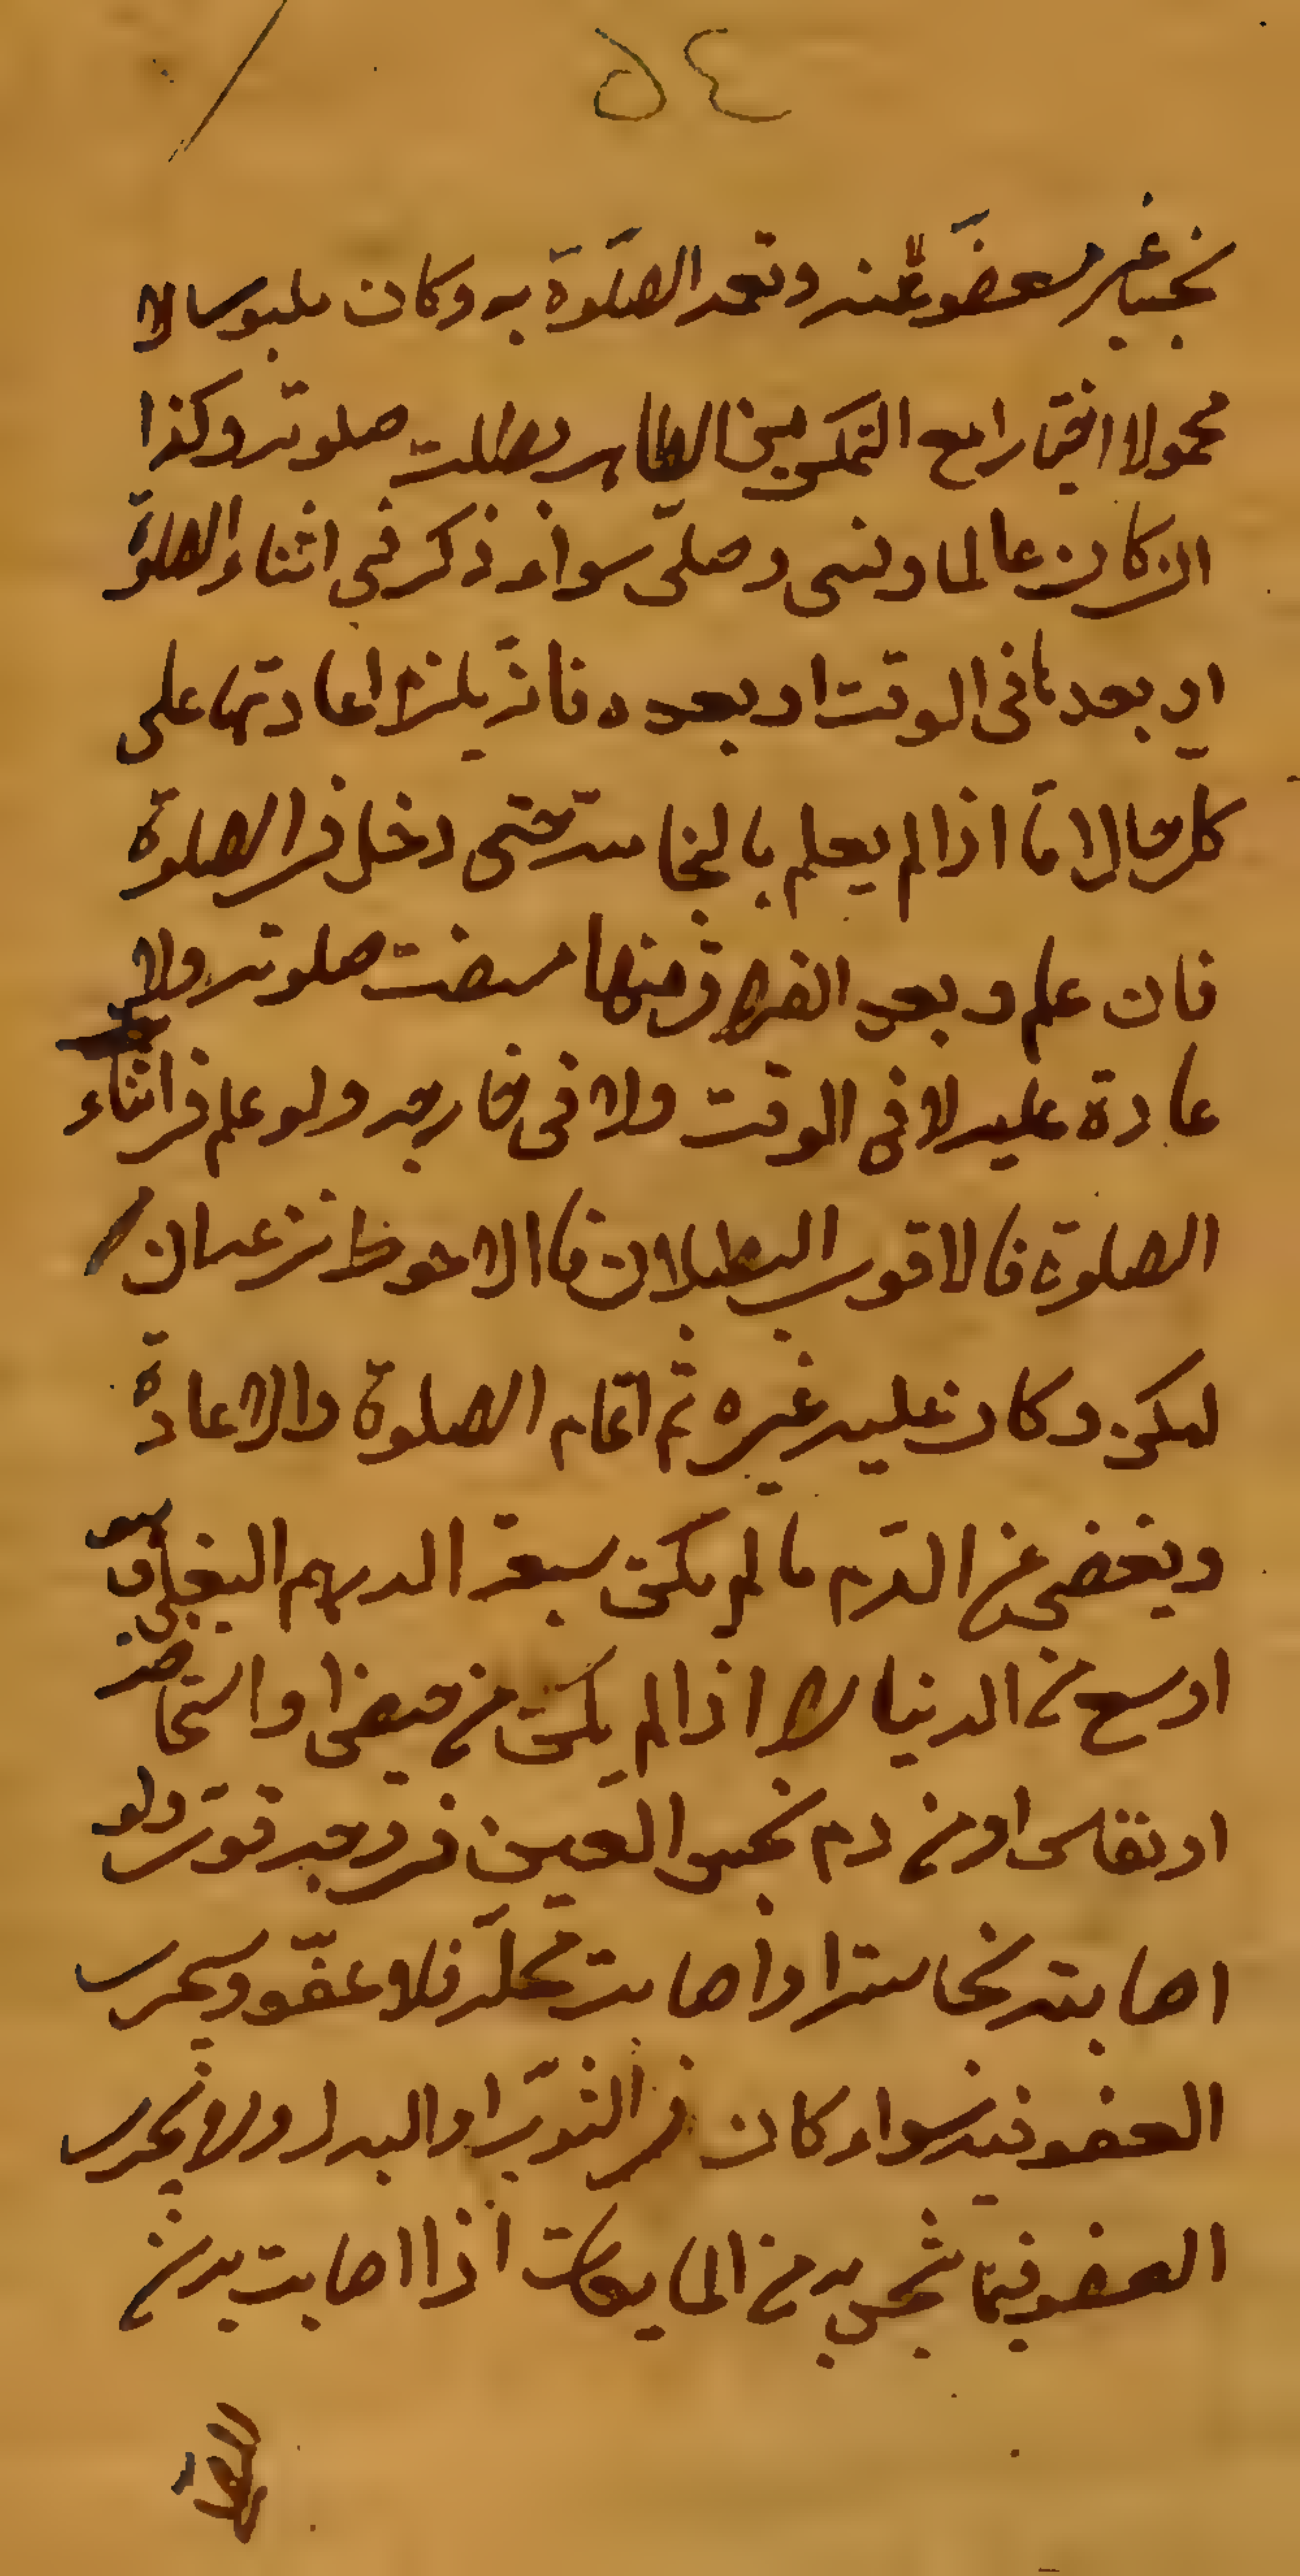 ٥٤
نجسا غير معفو عنه وتعمد الصلوة به وكان ملبوسا لا
محمولا اختيارا مع التمكن من الطاهر بطلت صلوته وكذا
ان كان عالما ونسى وصلّى سواء ذكر فى اثناء الصلوة
او بعدها فى الوقت او بعده فانه يلزم اعادتها على
كل حال امّا اذا لم يعلم بالنجاسة حتى دخل فى الصلوة
فان علم و بعد الفراغ منها مضت صلوته ولا
عادة عليه لا فى الوقت ولا فى خارجه ولو علم فى اثناء
الصلوة فالاقوى البطلان والاحوط نزعه ان
امكن وكان عليه غيره ثم اتمام الصلوة والاعادة
ويعفى عن الدّم ما لم يكن سعة الدرهم البغلى
اوسع من الدنيا اذا لم يكن من حيض او استحاضة
او نفاس او من دم نجس العين فى وجه قوى ولو
اصابته نجاسة او اصابت محلّه فلا عفو ويجرى
العفو فيه سواء كان فى الثوب او البدن ولا يجرى
العفو فيما نجس به من المايعات اذا اصابت بدنه